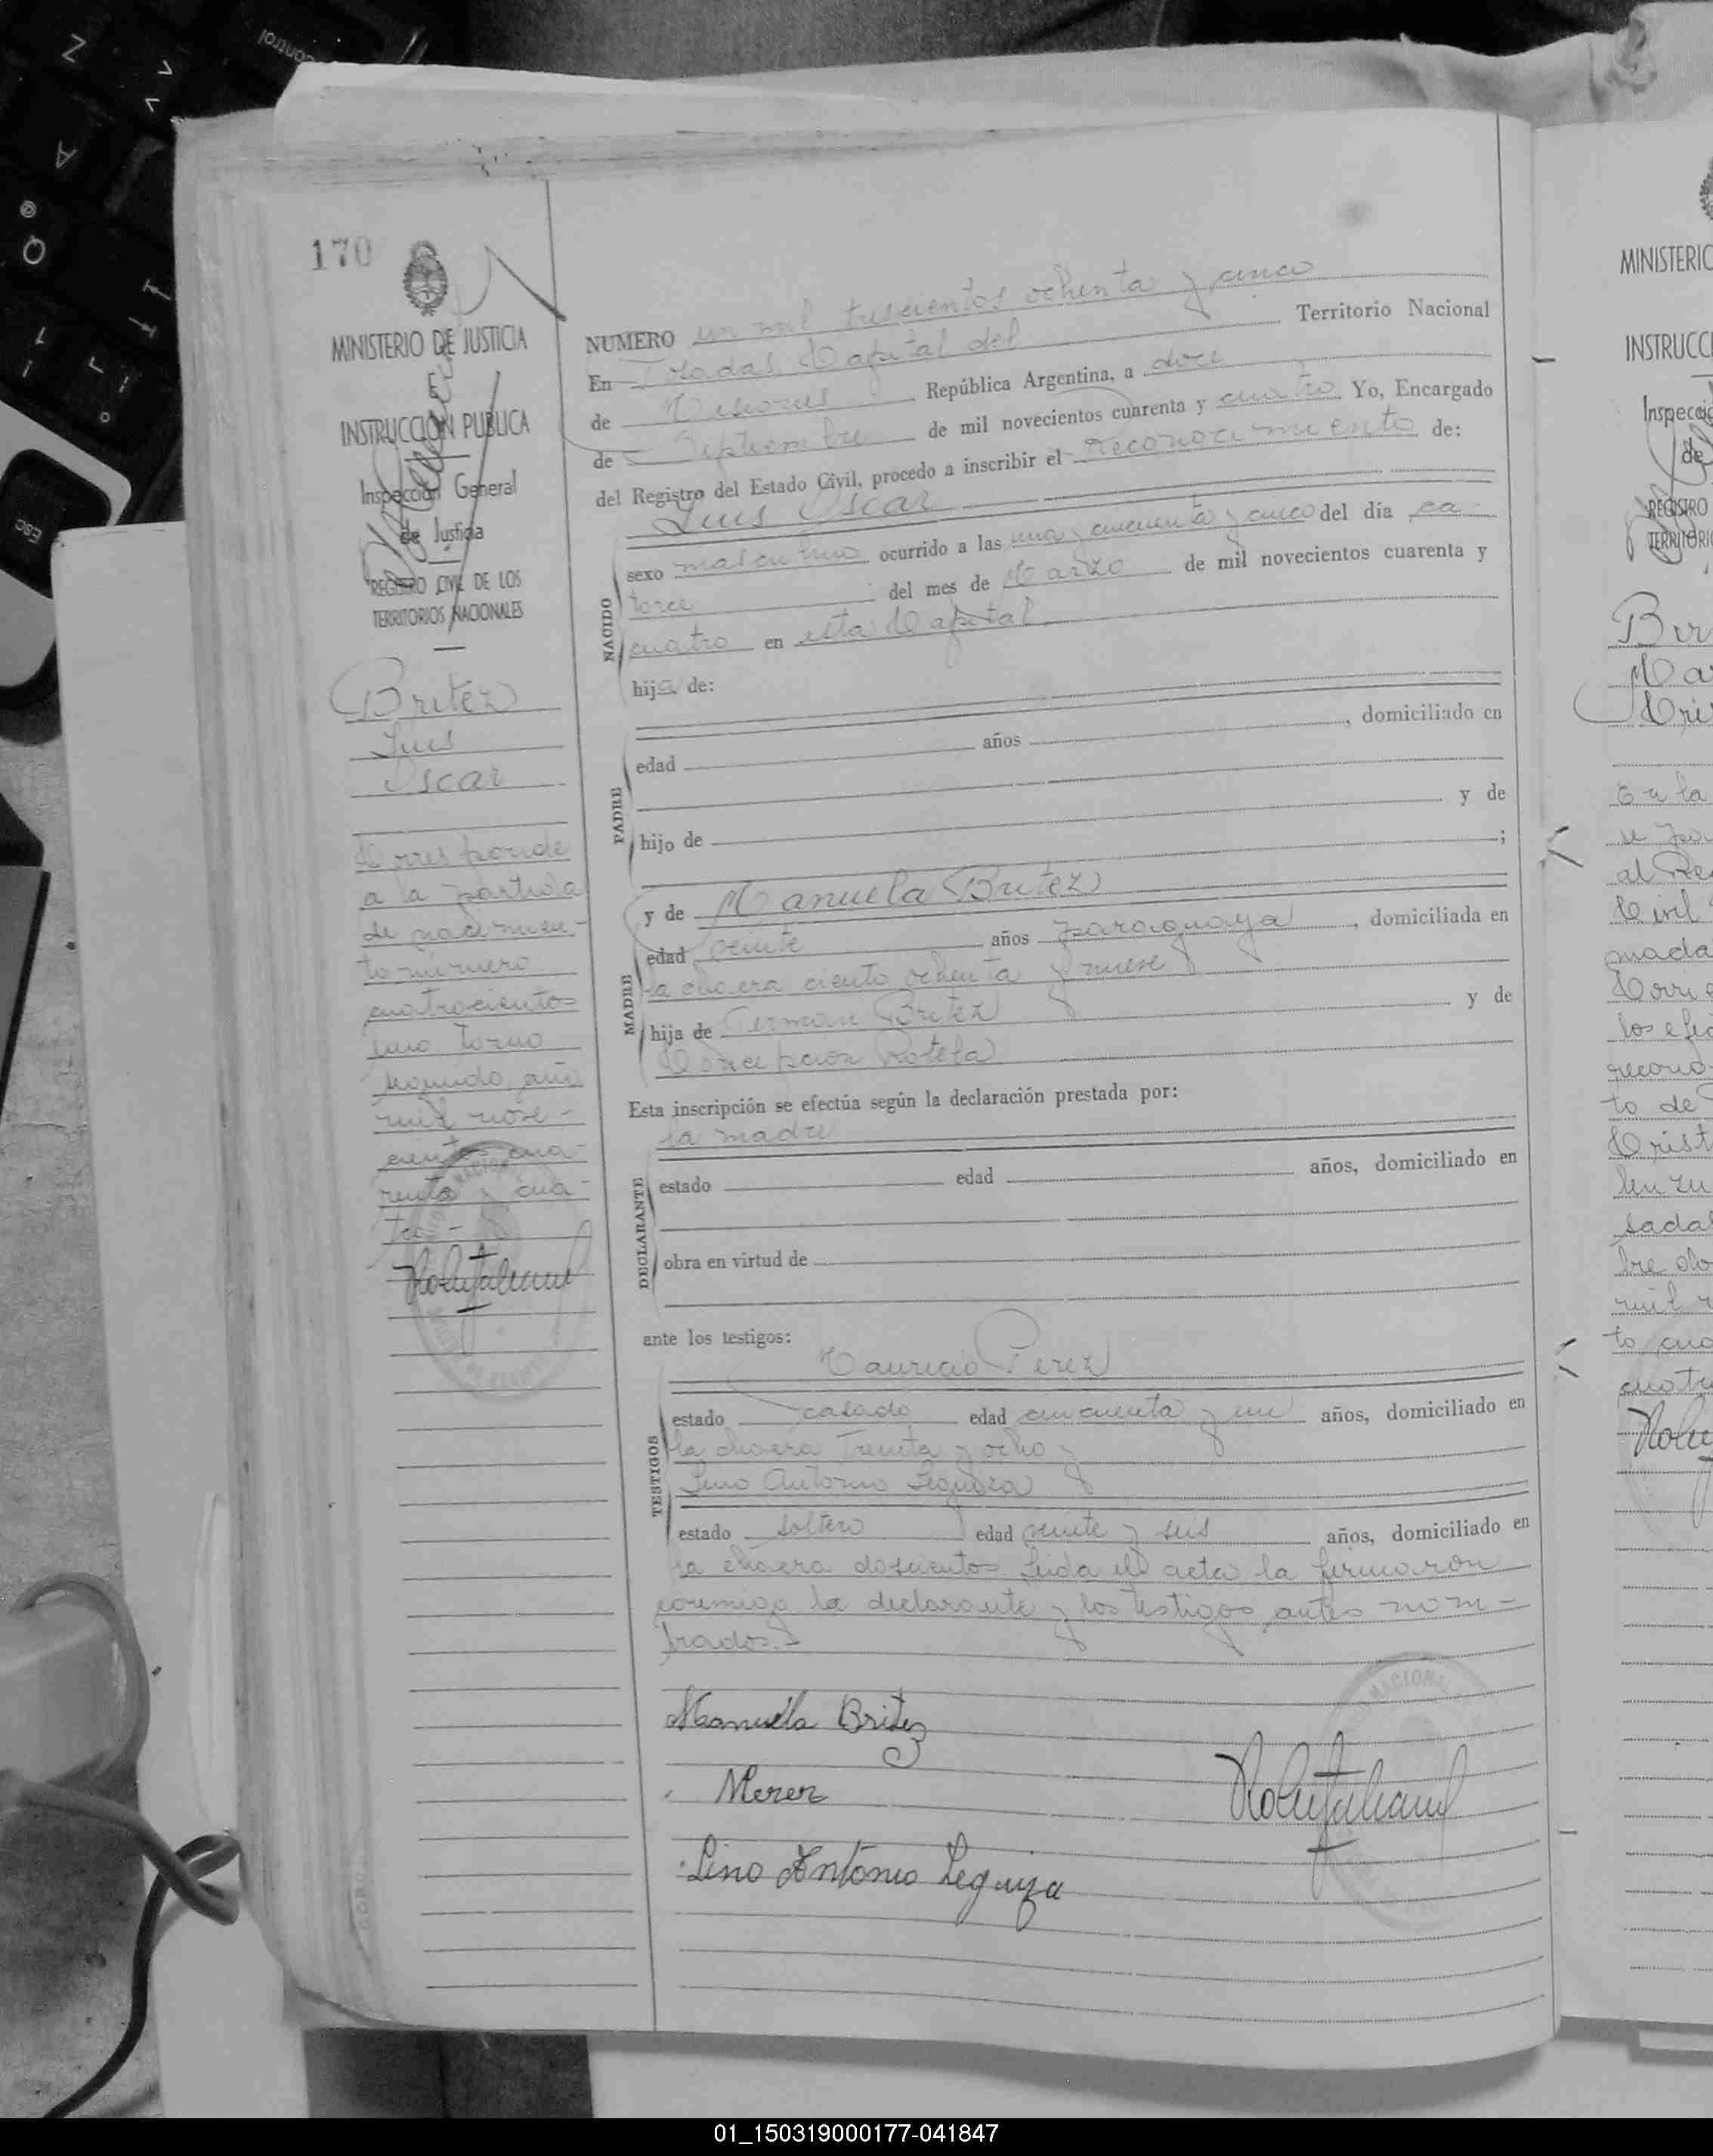 170
MINISTERIO DE JUSTICIA
E
INSTRUCCION PUBLICA
Inspección General
de Justicia
REGISTRO CIVIL DE LOS
TERRITORIOS NACIONALES
Britez
Luis
Oscar
Corresponde
a la partida
de nacimien-
to número
cuatrocientos
uno tomo
segundo año
mil nove-
cientos cua-
renta y cua-
tro-
NUMERO un mil trescientos ochenta y cinco
En Posadas, Capital del Territorio Nacional
de Misiones República Argentina, a doce
de Septiembre de mil novecientos cuarenta y cuatro Yo, Encargado
del Registro del Estado Civil, procedo a inscribir el reconocimiento de:
Luis Oscar
NACIDO
sexo masculino ocurrido a las una y cincuenta y cinco del día ca-
torce del mes de Marzo de mil novecientos cuarenta y
cuatro en esta Capital
hijo de:
PADRE
edad años , domiciliado en
y de
hijo de ;
MADRE
y de Manuela Britez
edad veinte años paraguaya , domiciliada en
la chacra ciento ochenta y nueve
hija de German Britez y de
Concepcion Rotela
Esta inscripción se efectúa según la declaración prestada por:
la madre
DECLARANTE
estado edad años, domiciliado en
obra en virtud de
ante los testigos:
Mauricio Perez
TESTIGOS
estado casado edad cincuenta y un años, domiciliado en
la chacra treinta y ocho y
Lino Antonio Leguiza
estado soltero edad veinte y seis años, domiciliado en
la chacra doscientos. Leida el acta la firmaron
conmigo la declarante y los testigos antes nom-
brados.-
Manuela Britez
Merez
Lino Antonio Leguiza
MINISTERIO
INSTRUCCI
Inspecció
de
REGISTRO
TERRITORI
En la
al Re
Civil
mada
los efec
recono
to de
Crist
bre do
mil n
to cua
cuatr
01_150319000177-041847